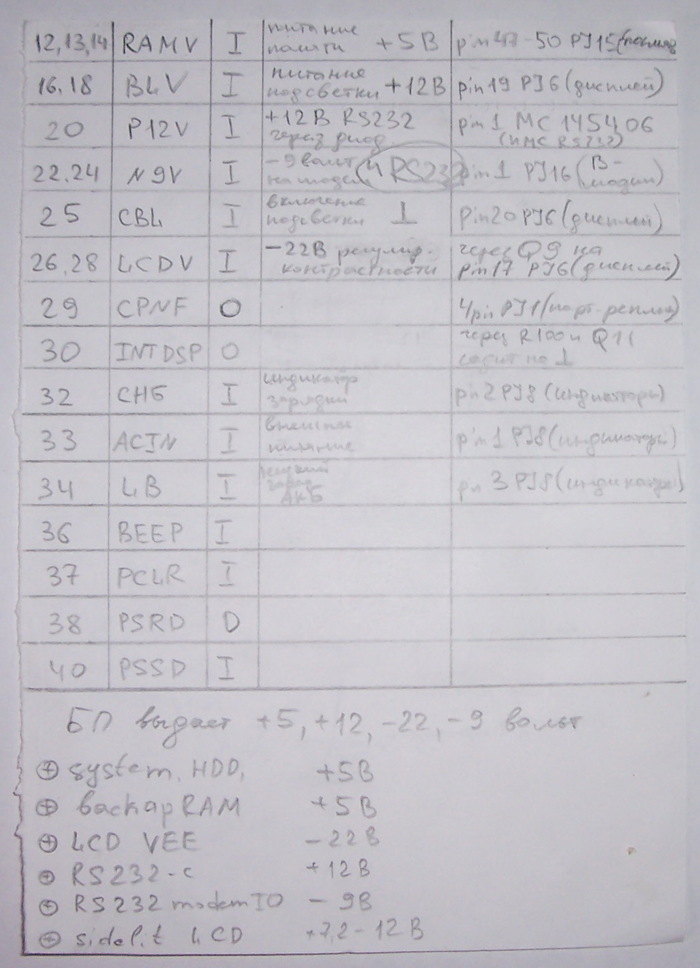 12,13,14 RAMV I питание памяти +5В pin 47-50 PJ15
16.18 BLV I питание подсветки +12В pin 19 PJ6 (дисплей)
20 P12V I +12В RS232 через диод pin 1 MC 145406 (ИМС RS232)
22.24 N9V I -9 вольт на модем (и RS232) pin 1 PJ16 (В-модем)
25 CBL I включение подсветки ⊥ pin 20 PJ6 (дисплей)
26,28 LCDV I -22В регулир. контрастности через Q9 на pin 17 PJ6 (дисплей)
29 CPNF O 4pin PJ1 (порт-реплик)
30 INTDSP O через R100 и Q11 на ⊥
32 CHG I индикатор зарядки pin 2 PJ8 (индикаторы)
33 ACIN I внешнее питание pin 1 PJ8 (индикаторы)
34 LB I АКБ 3 PJ8 (индикаторы)
36 BEEP I
37 PCLR I
38 PSRD D
40 PSSD I
БП выдает +5, +12, -22, -9 вольт
⊕ system, HDD, +5В
⊕ backap RAM +5В
⊕ LCD VEE -22В
⊕ RS232-c +12В
⊕ RS232 modem IO - 9В
⊕ sidelit LCD +7,2-12В